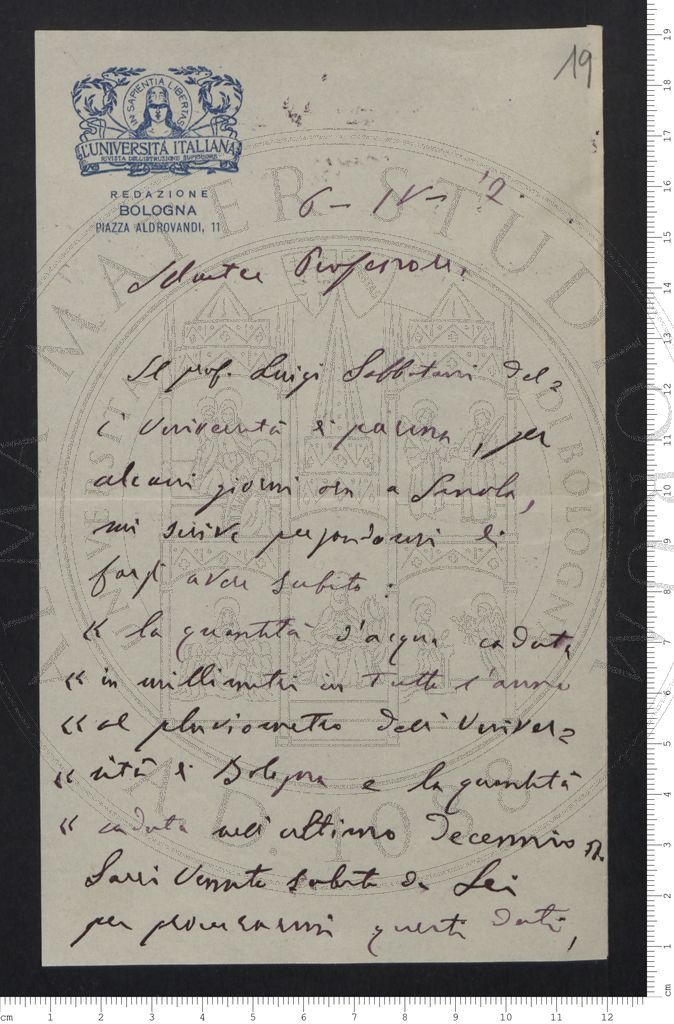 19
IN SAPIENTIA LIBERTAS
L'UNIVERSITÁ ITALIANA
RIVISTA DELL'ISTRUZIONE SUPERIORE
REDAZIONE
BOLOGNA
PIAZZA ALDROVANDI, 11
6 - IV - '2
Professore,
Il prof. Luigi Sabbatani del=
l'Università di parma, per
alcuni giorni ora a Imola,
mi scrive pregandomi di
fargli avere subito:
« la quantità d'acqua caduta
« in millimetri in tutto l'anno
« al pluviometro dell'Univer=
« sità di Bologna e la quantità
« caduta nell'ultimo decennio ».
Sarei venuto subito da Lei
per procurarmi questi dati,
ALMA MATER STUDIORUM
UNIVERSITÀ DI BOLOGNA
A.D. 1088